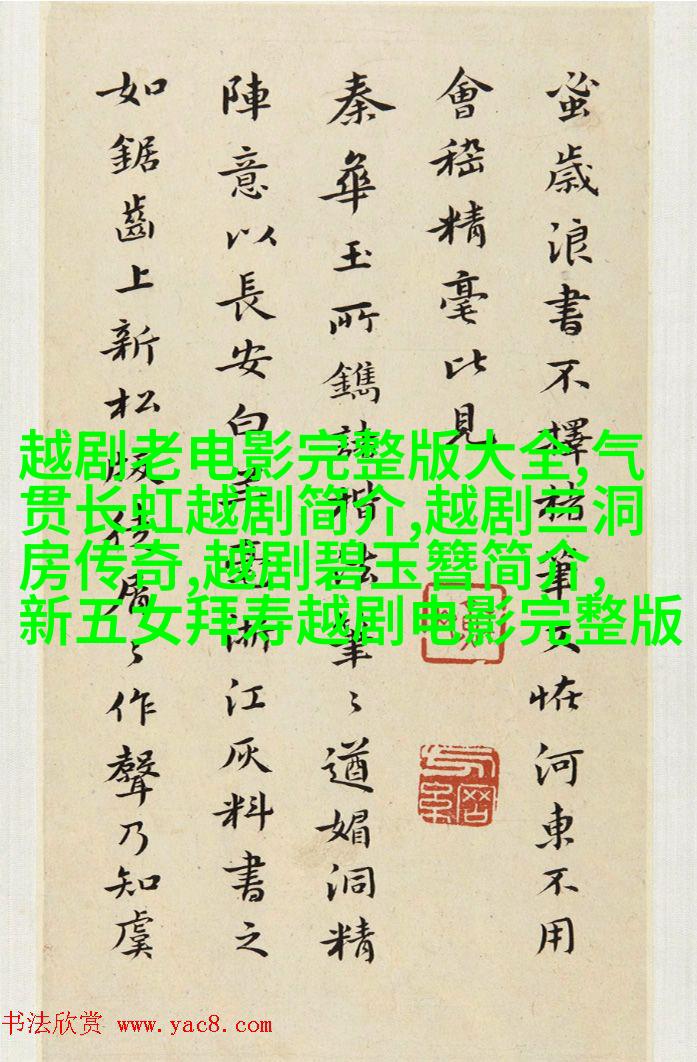 蚤歲浪書不擇紙筆又恠河東不用
會稽精毫比見
秦華玉所鐫諸楷法々遒媚洞精
陣意以長安白羊毫浙江灰料書之
如鋸齒上新松版徒屑々作聲乃知虞
越剧老电影完整版大全,气
贯长虹越剧简介,越剧三洞
房传奇,越剧碧玉簪简介,
新五女拜寿越剧电影完整版
书法欣赏 www.yac8.com